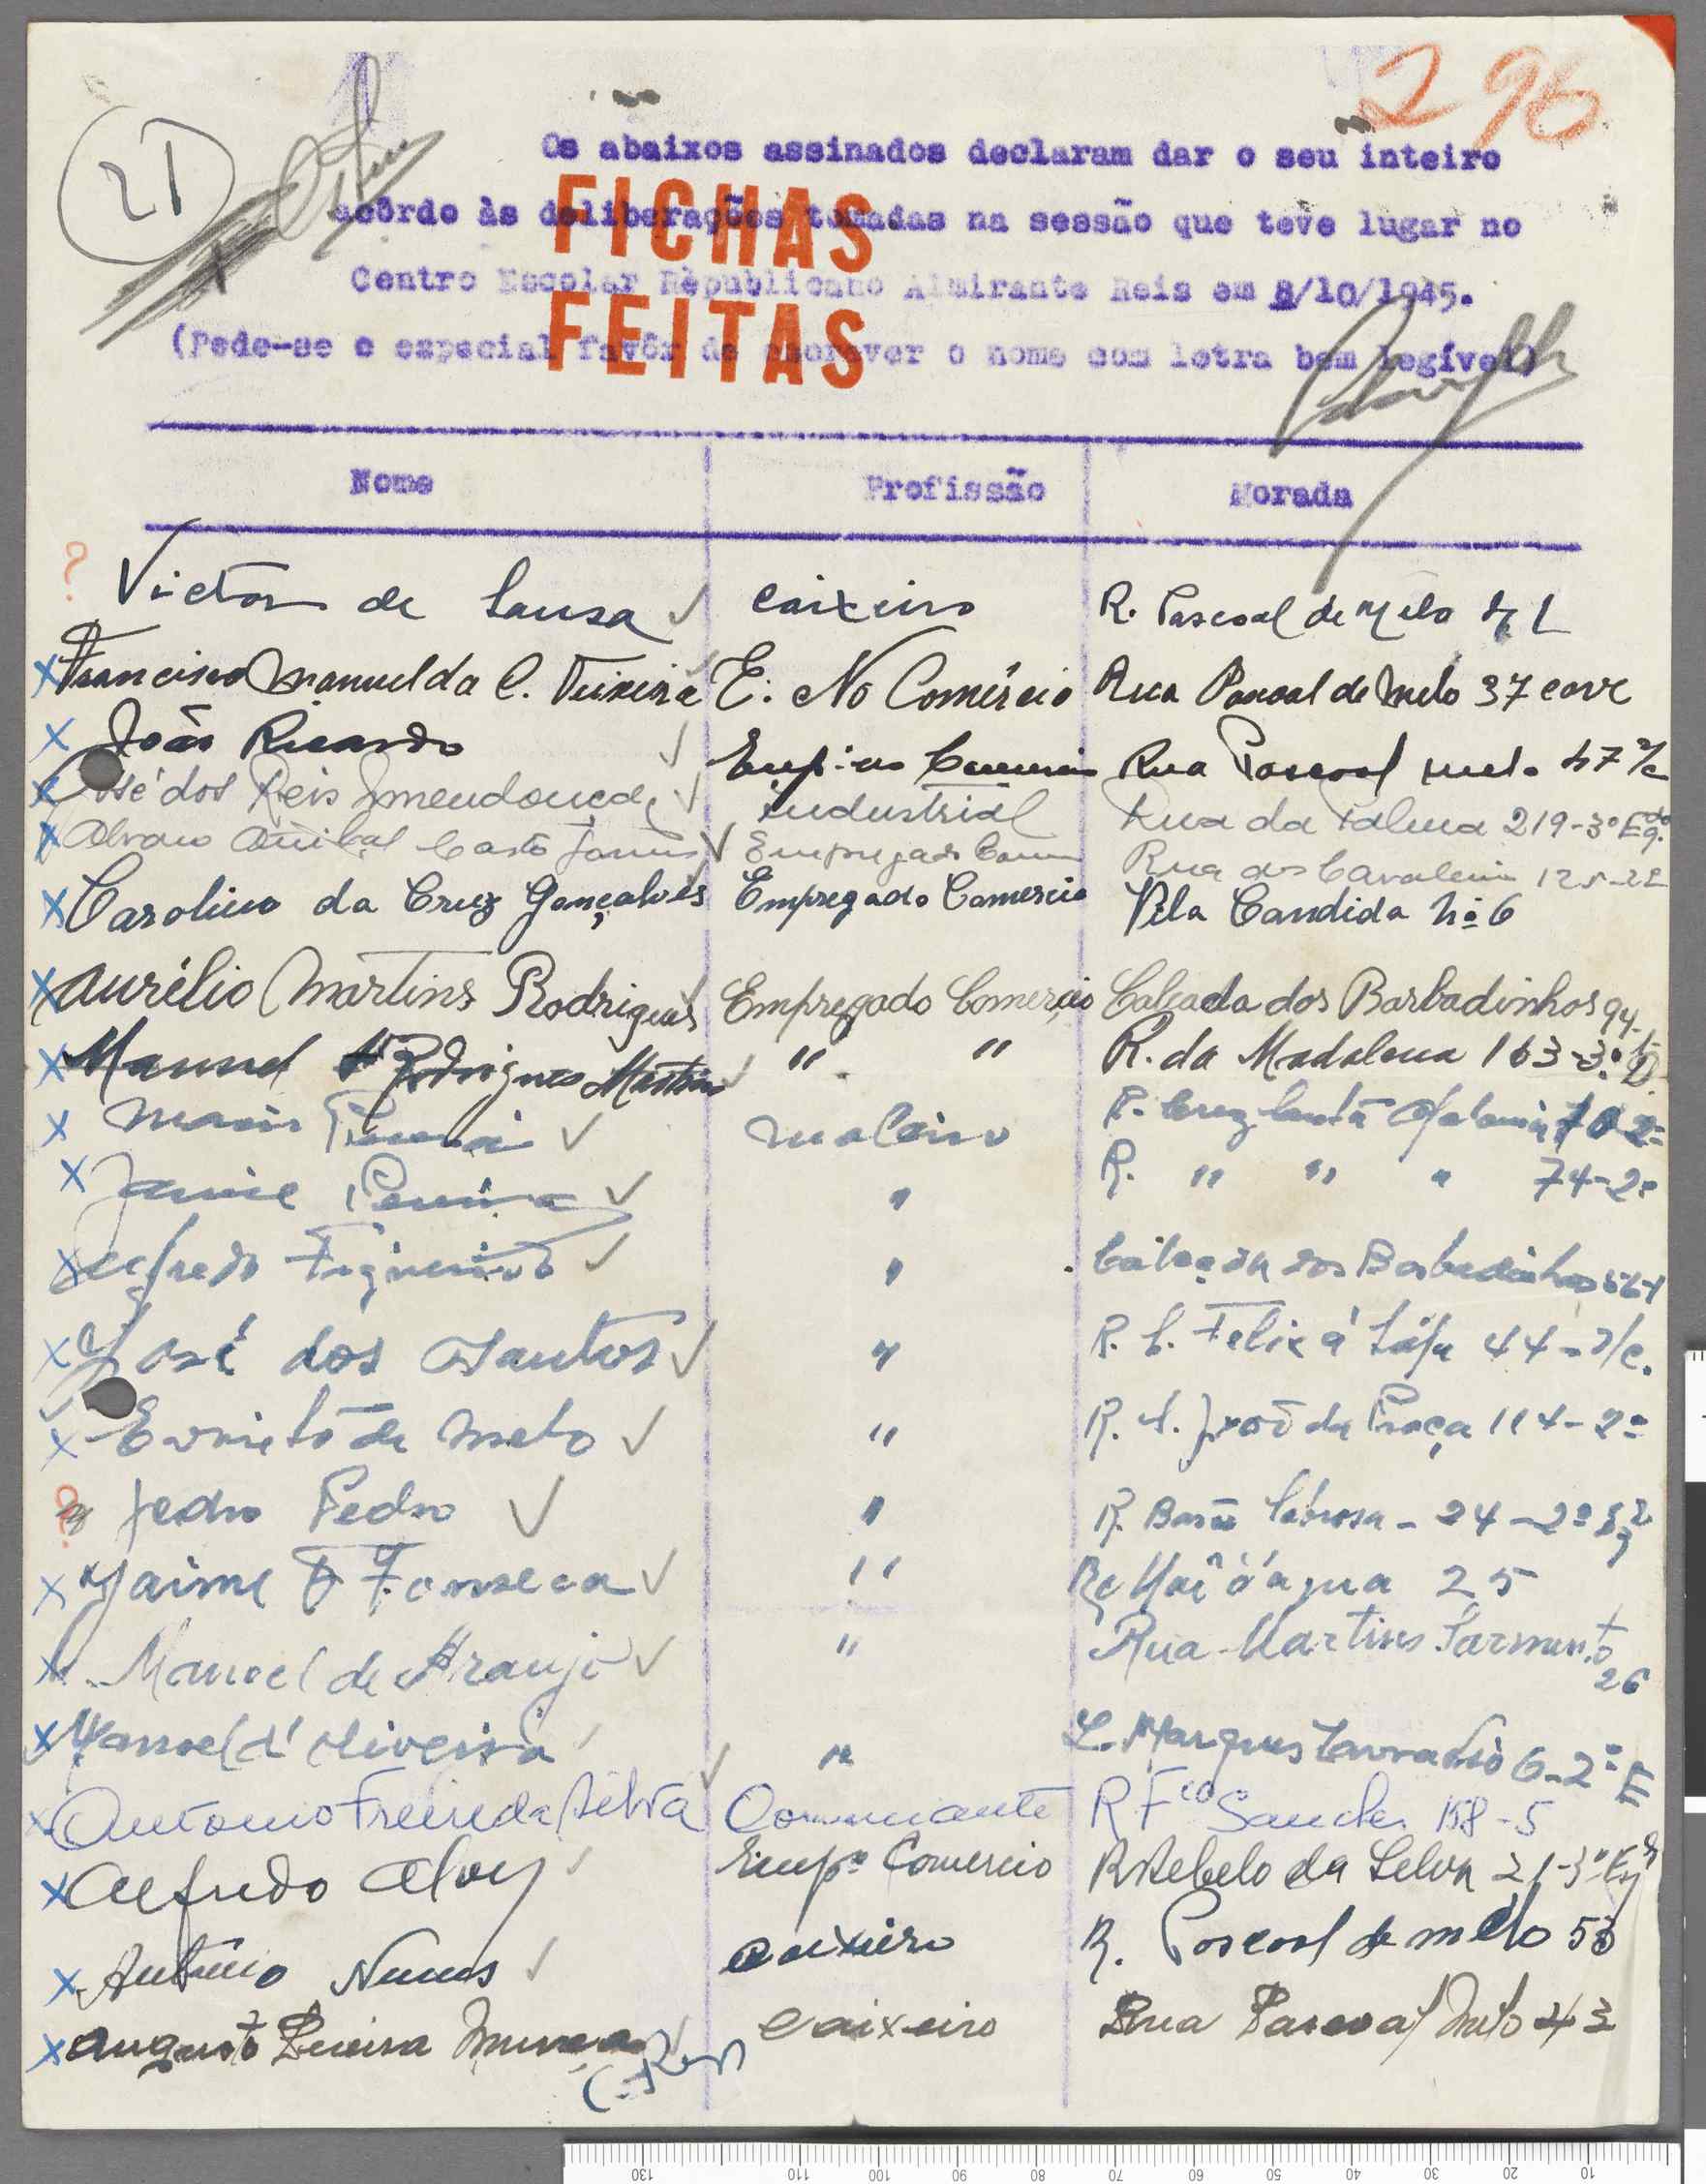 296
21
Os abaixos assinados declaram dar o seu inteiro
acôrdo às deliberações tomadas na sessão que teve lugar no
Centro Escolar Rèpublicano Almirante Reis em 8/10/1945.
(Pede-se o especial favôr de escrever o nome com letra bem legível)
FICHAS
FEITAS
Nome Profissão Morada
? Victor de Sousa caixeiro R. Pascoal de Melo
Francisco Manuel da C. Teixeira E. No Comércio Rua Pascoal de Melo 37 cave
João Ricardo Emp. no Comercio Rua Pascoal Melo 47 r/c
José dos Reis Mendonça industrial Rua da Palma 219-3º Eqdo.
Alvaro Anibal Empregado Com Rua dos Cavaleiros
Carolino da Cruz Gonçalves Empregado Comercio Vila Candida Nº 6
Aurélio Martins Rodrigues Empregado Comercio Calçada dos Barbadinhos 94-
Manuel Rodrigues Martins " " R. da Madalena 163-3º D
Mario Pereira maleiro R. Cruz Santa Apolonia 2º
Jaime Pereira " R. " " " 74-2º
Alfredo Figueiredo " Calçada dos Barbadinhos
José dos Santos " R. S. Felix á Lápa 44-r/c.
Ernesto de Melo " R. S. João da Praça 114-2º
? Pedro Pedro " R. Barão Sabrosa - 24-2º Eq
Jaime F. Fonseca " Mai d'água 25
Manoel de Araujo " Rua Martins Sarmento 26
Manoel d'Oliveira " L. Marques Lavradio 6-2º E
Antonio Freire da Silva Comerciante R Fco Sanches 158-5
Alfredo Aloy Empº Comercio R Rebelo da Silva 21-3º Esq
António Nunes caixeiro R. Pascoal de Melo 53
Augusto Pereira caixeiro Rua Pascoal Melo 43
130 110 100 90 80 70 60 50 40 30 20 10